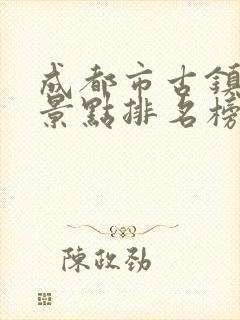 成都市古鎮
景點排名榜
陳政勁